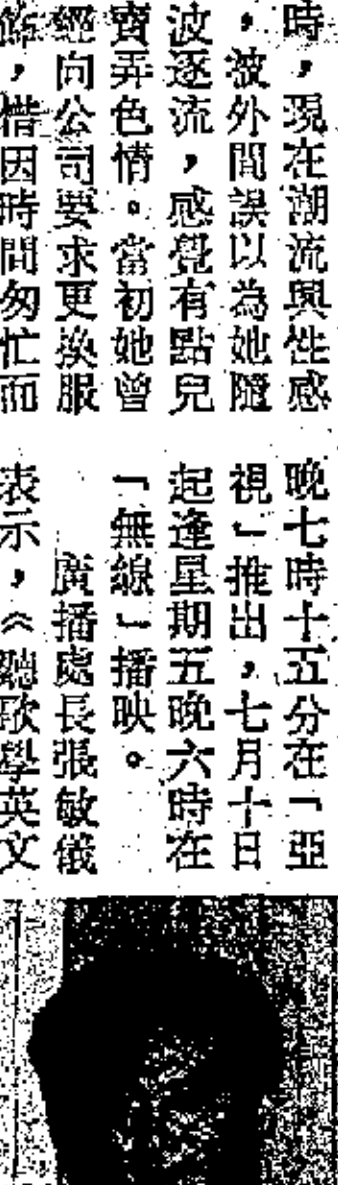 時，現在潮流興性感
，被外間誤以為她隨
波逐流，感覺有點兒
賣弄色情。當初她曾
經向公司要求更換服
飾，惜因時間匆忙而
晚七時十五分在「亞
視」推出，七月十日
起逢星期五晚六時在
「無線」播映。
廣播處長張敏儀
表示，《聽歌學英文